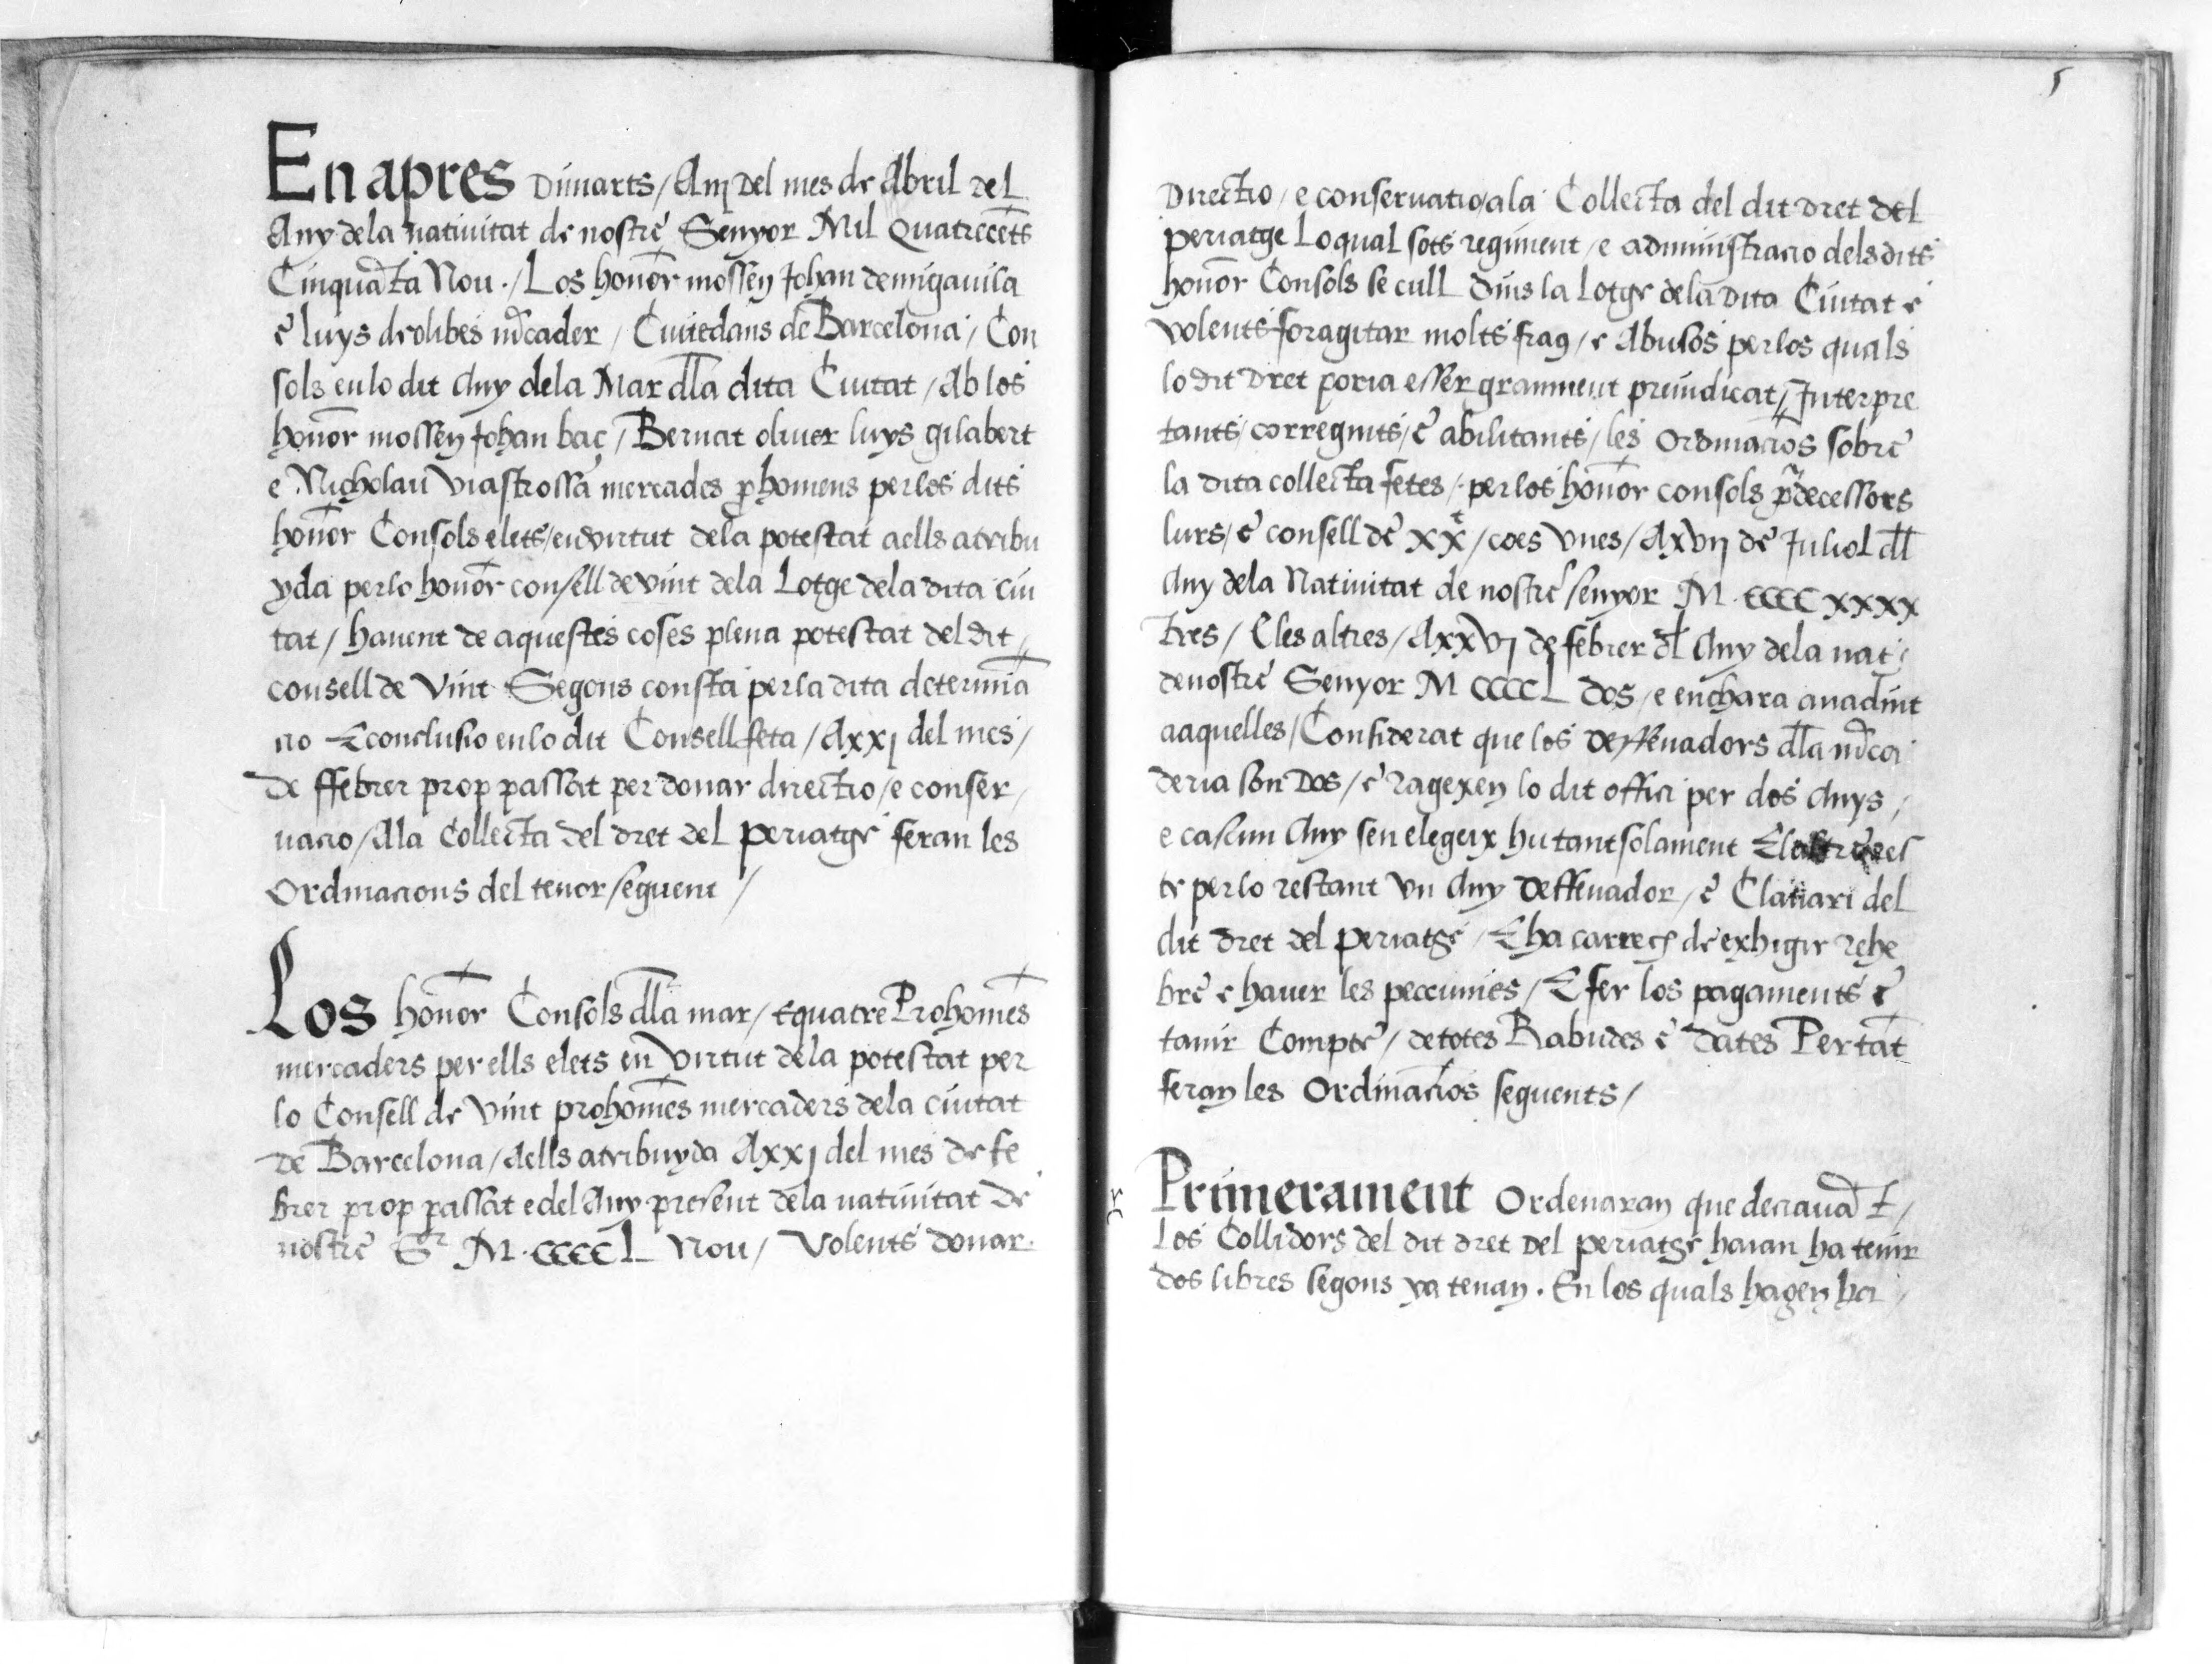 En apres Dimarts / Aııj Del mes de Abril del
Any dela natiuitat de nostre Senyor Mil Quatrecēts
Cinquāta Nou ./ Los honor̄ mossen Johan de migauila
e luys de olibes m̄cader / Ciutedans de Barcelona / Con
sols en lo dit Any dela Mar dl̄a dita Ciutat / Ab los
honor̄ mossen Johan bac / Bernat oliuer luys gilabert
e Nicholau viastrossa mercades ꝓhomens per los dits
honor̄ Consols elets / en virtut dela potestat aells atribu
yda per lo honor̄ consell de vint dela Lotge dela dita ciu
tat / hauent de aquestes coses plena potestat del dit /
consell de Vint Segons consta per la dita determina
cio E conclusio en lo dit Consell feta / Axxj del mes /
de ffebrer prop passat per donar directio / e conser /
uacio / Ala Collecta del dret del periatge feran les
Ordinacions del tenor seguent /
Los honor̄ Consols dl̄a mar / e quatre Prohomēs
mercaders per ells elets en virtut dela potestat per
lo Consell de Vint prohomēs mercaders dela ciutat
de Barcelona / Aells atribuyda Axxj del mes de fe
brer prop passat e del Any present dela natiuitat de
nostre Sr M · CCCC L Nou / Volents donar
5
Directio / e conseruatio / ala Collecta del dit dret del
periatge Lo qual sots regiment / e administracio dels dits
honor̄ Consols se cull dins la Lotge dela Dita Ciutat e
volents foragitar molts fraꝯ / e Abusos per los quals
lo dit Dret poria esser granment preiudicat // Interpre
tants / corregints / e abilitants / les Ordinaciōs sobre
la dita collecta fetes / per los honor̄ consols p̄decessors
lurs / e consell de xxt / coes vnes / Axvij de Juliol dl̄
Any dela Natiuitat de nostre senyor M · CCCC xxxx
tres / E les altres / Axxvj de febrer dl̄ Any dela nat /
de nostre Senyor M CCCC L dos / e enchara anadint
aaquelles / Considerat que los deffenadors dl̄a m̄ca
deria son Dos / e ragexen lo dit offici per dos Anys /
e cascun Any sen elegeix hu tant solament
te per lo restant vn Any deffenador / e Clauari del
dit dret del periatge / E ha carrech de exhigir rehe
bre e hauer les peccunies / E fer los pagaments e
tanir Compte / de totes Rabudes e dates Per tāt
feran les Ordinaciōs seguents /
Primerament Ordenaran que deciauā t /
Los Collidors del dit dret Del periatge haian ha tenir
dos libres segons ya tenan . En los quals hagen ha /